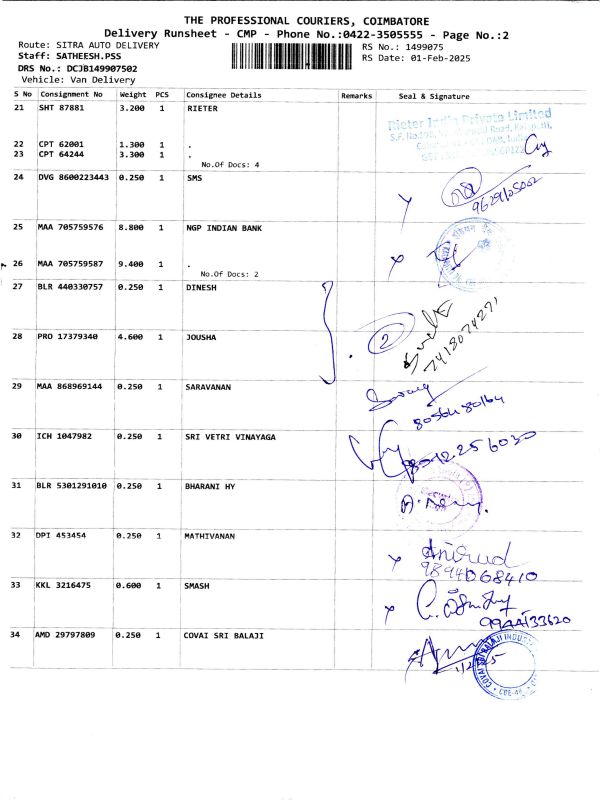 THE PROFESSIONAL COURIERS, COIMBATORE
Delivery Runsheet - CMP - Phone No.:0422-3505555 - Page No.:2
Route: SITRA AUTO DELIVERY
RS No.: 1499075
Staff: SATHEESH.PSS
RS Date: 01-Feb-2025
DRS No.: DCJB149907502
Vehicle: Van Delivery
S No Consignment No Weight PCS Consignee Details Remarks Seal & Signature
21 SHT 87881 3.200 1 RIETER
Rieter India Private Limited
22 CPT 62001 1.300 1 .
23 CPT 64244 3.300 1 .
No.Of Docs: 4
24 DVG 8600223443 0.250 1 SMS
25 MAA 705759576 8.800 1 NGP INDIAN BANK
26 MAA 705759587 9.400 1 .
No.Of Docs: 2
27 BLR 440330757 0.250 1 DINESH
28 PRO 17379340 4.600 1 JOUSHA
2
7418074271
29 MAA 868969144 0.250 1 SARAVANAN
8056480164
30 ICH 1047982 0.250 1 SRI VETRI VINAYAGA
31 BLR 5301291010 0.250 1 BHARANI HY
32 DPI 453454 0.250 1 MATHIVANAN
Anirud
9894068410
33 KKL 3216475 0.600 1 SMASH
9944133620
34 AMD 29797809 0.250 1 COVAI SRI BALAJI